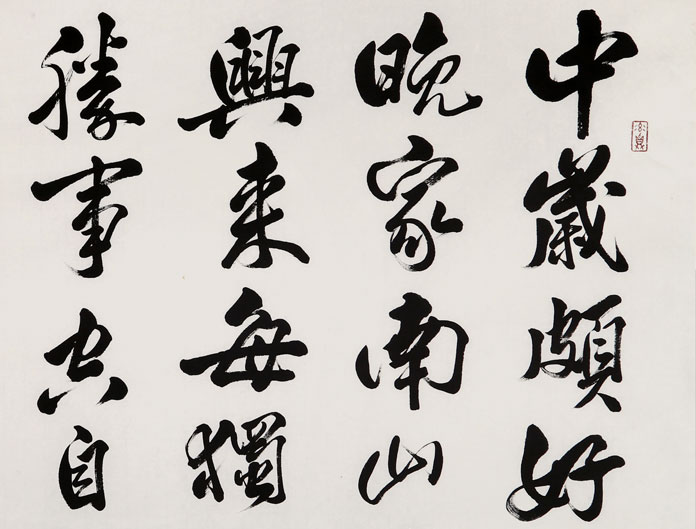 中歲頗好
晚家南山
興来每獨
勝事空自